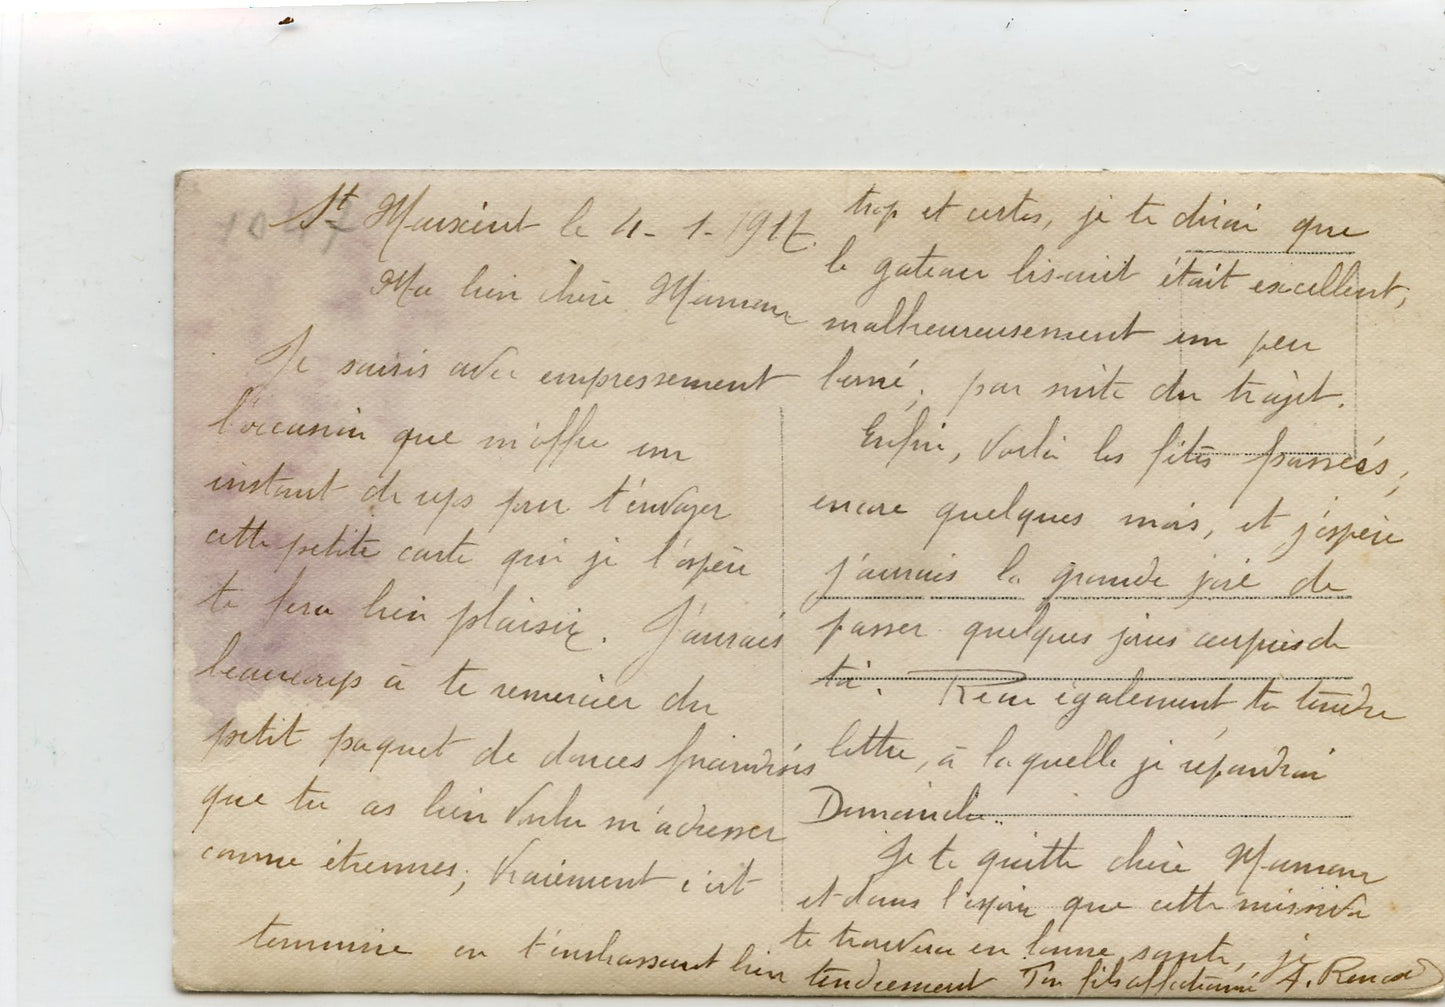 1047
St Maixent le 4-1-1917.
Ma bien chère Maman
Je saisis avec empressement
l'occasion que m'offre un
instant de repos pour t'envoyer
cette petite carte qui je l'espère
te fera bien plaisir. J'aurais
beaucoup à te remercier du
petit paquet de douces friandises
que tu as bien voulu m'adresser
comme étrennes; vraiement c'est
trop et certes, je te dirai que
le gateau biscuit était excellent,
malheureusement un peu
par suite du trajet.
Enfin, voilà les fêtes passées,
encore quelques mois, et j'espère
j'aurais la grande joie de
passer quelques jours auprès de
toi. Reçu également ta tendre
lettre, à laquelle je répondrai
Dimanche.
Je te quitte chère Maman
et dans l'espoir que cette missive
te trouvera en bonne santé, je
termine en t'embrassant bien tendrement Ton fils affectionné A.